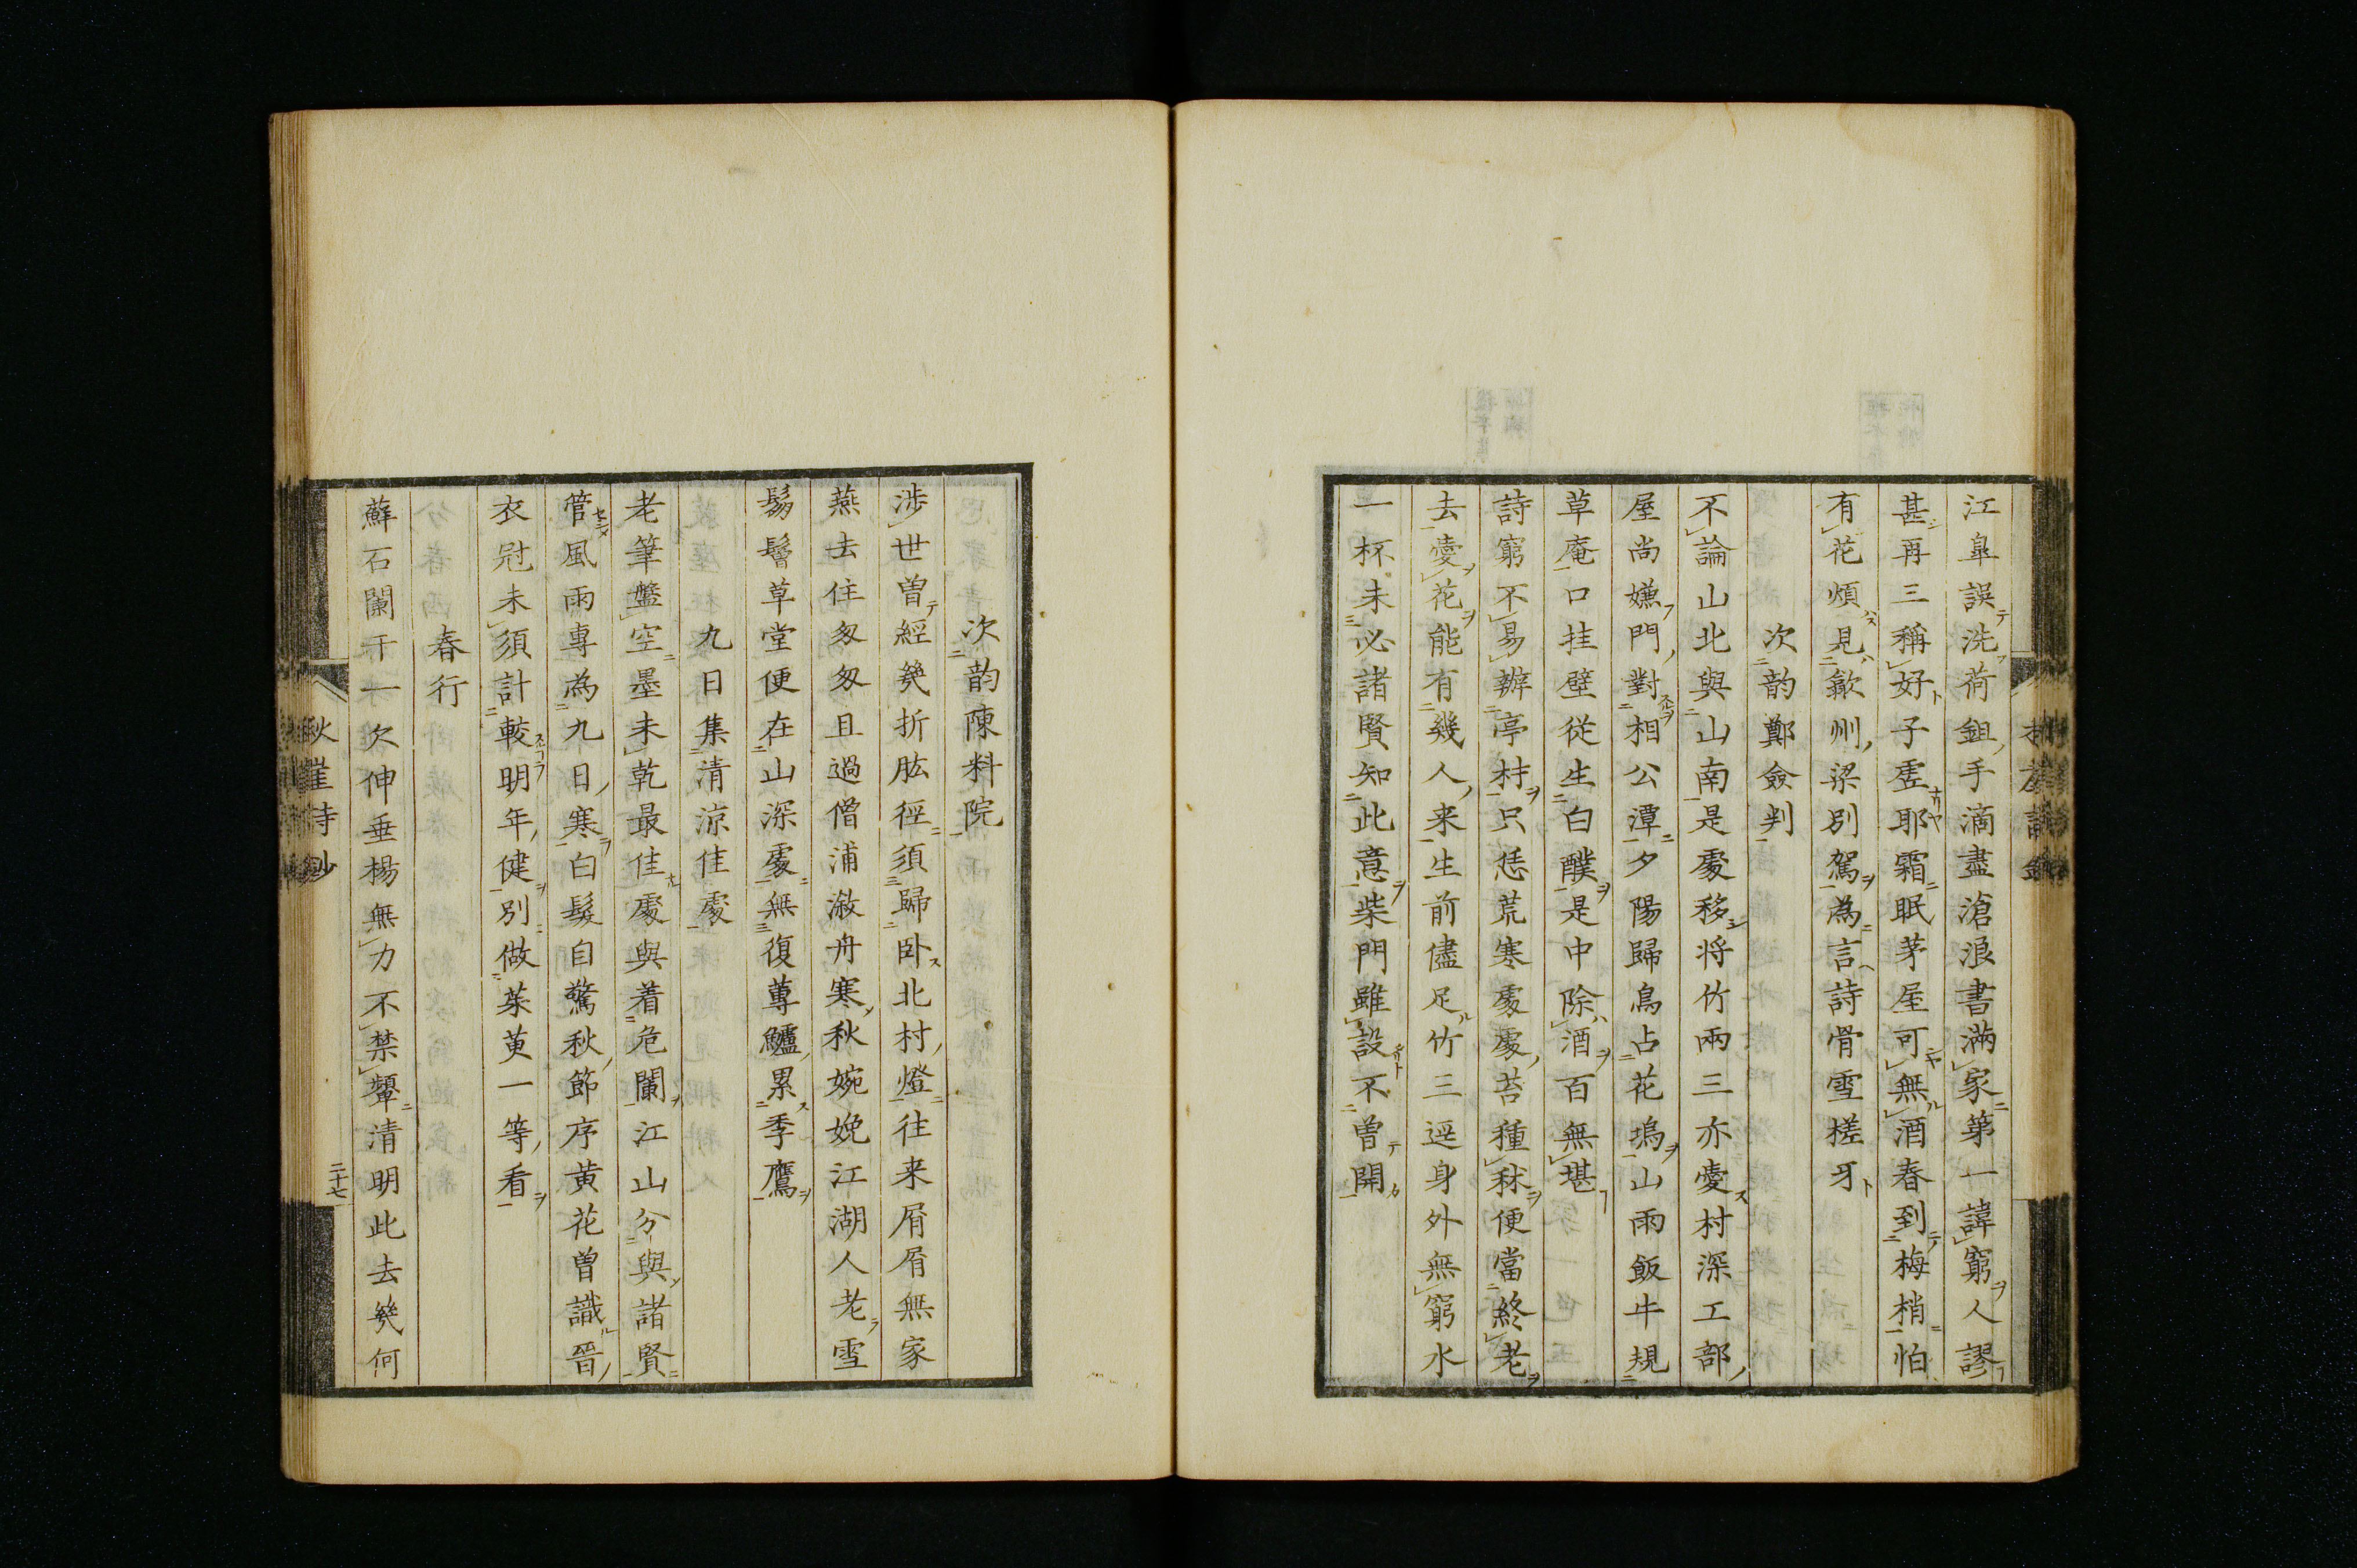 江皐誤洗荷鉏手滴盡滄浪書滿家第一諱窮人謬
甚再三稱好子虛耶霜眠茅屋可無酒春到梅梢怕
有花煩見歙州梁別駕為言詩骨雪槎牙
次韵鄭僉判
不論山北與山南是處移將竹兩三亦愛村深工部
屋尚嫌門對相公潭夕陽歸鳥占花塢山雨飯牛規
草庵口挂壁從生白醭是中除酒百無堪
詩窮不易辦亭村只恁荒寒處處苔種秫便當終老
去愛花能有幾人来生前儘足竹三逕身外無窮水
一杯未必諸賢知此意柴門雖設不曽開
次韵陳料院
渉世曽經幾折肱徑須歸卧北村燈往来屑屑無家
燕去住匆匆且過僧浦漵舟寒秋婉娩江湖人老雪
鬅鬙草堂便在山深處無復蓴鱸累季鷹
九日集清涼佳處
老筆盤空墨未乾最佳處與着危闌江山分與諸賢
管風雨專為九日寒白髮自驚秋節序黃花曽識晉
衣冠未須計較明年健別做茱萸一等看
春行
蘚石闌干一欠伸垂楊無力不禁顰清明此去幾何
秋崖詩鈔
二十七